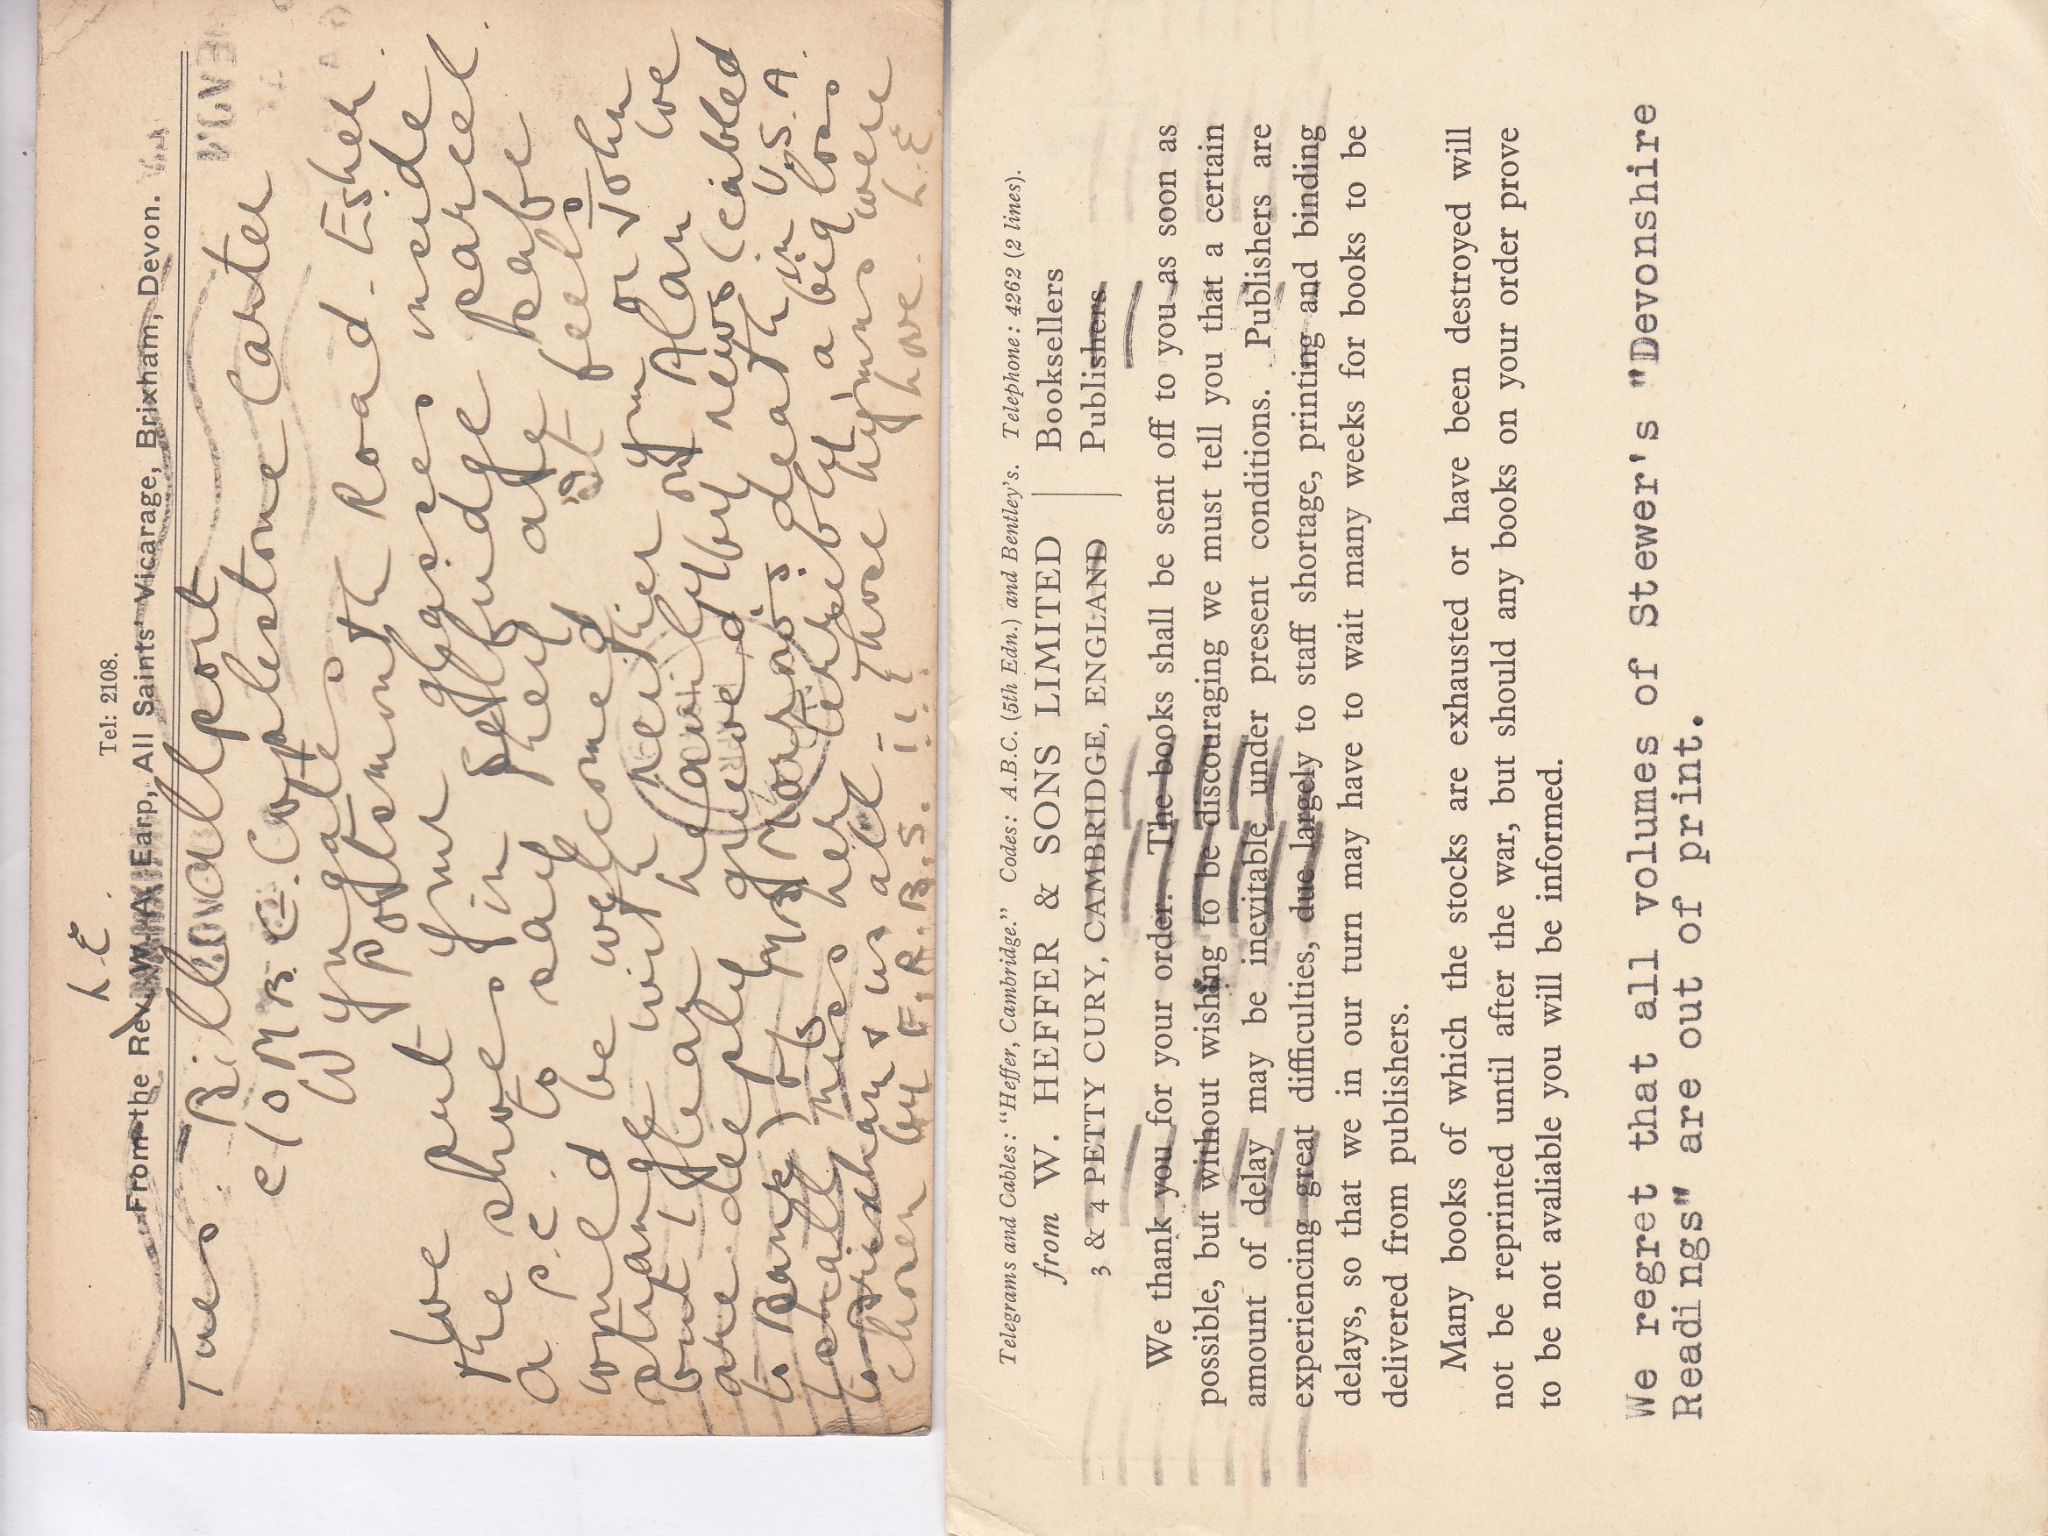 L.E.
Tel: 2108.
From the Rev. W. A. Earp, All Saints' Vicarage, Brixham, Devon.
Tues Bill
c/o Mrs E. Coplestone Carter
Wyngates
Portsmouth Road - Esher
We put your glasses inside
the shoes in Selfridge parcel
a p.c. to say they are safe
would be welcomed. It feels
strange with neither you or John
but I hear heavily on Alan we
are deeply grieved by news (cabled
to Bank) of Mrs Morrow's death in U.S.A.
I shall miss her terribly, a big loss
to Brixham & us all - !!! those hymns were
chosen by F.R.B.S. love. L.E.
Telegrams and Cables: "Heffer, Cambridge." Codes: A.B.C. (5th Edn.) and Bentley's. Telephone: 4262 (2 lines).
from W. HEFFER & SONS LIMITED Booksellers
3 & 4 PETTY CURY, CAMBRIDGE, ENGLAND Publishers
We thank you for your order. The books shall be sent off to you as soon as
possible, but without wishing to be discouraging we must tell you that a certain
amount of delay may be inevitable under present conditions. Publishers are
experiencing great difficulties, due largely to staff shortage, printing and binding
delays, so that we in our turn may have to wait many weeks for books to be
delivered from publishers.
Many books of which the stocks are exhausted or have been destroyed will
not be reprinted until after the war, but should any books on your order prove
to be not avaliable you will be informed.
We regret that all volumes of Stewer's "Devonshire
Readings" are out of print.